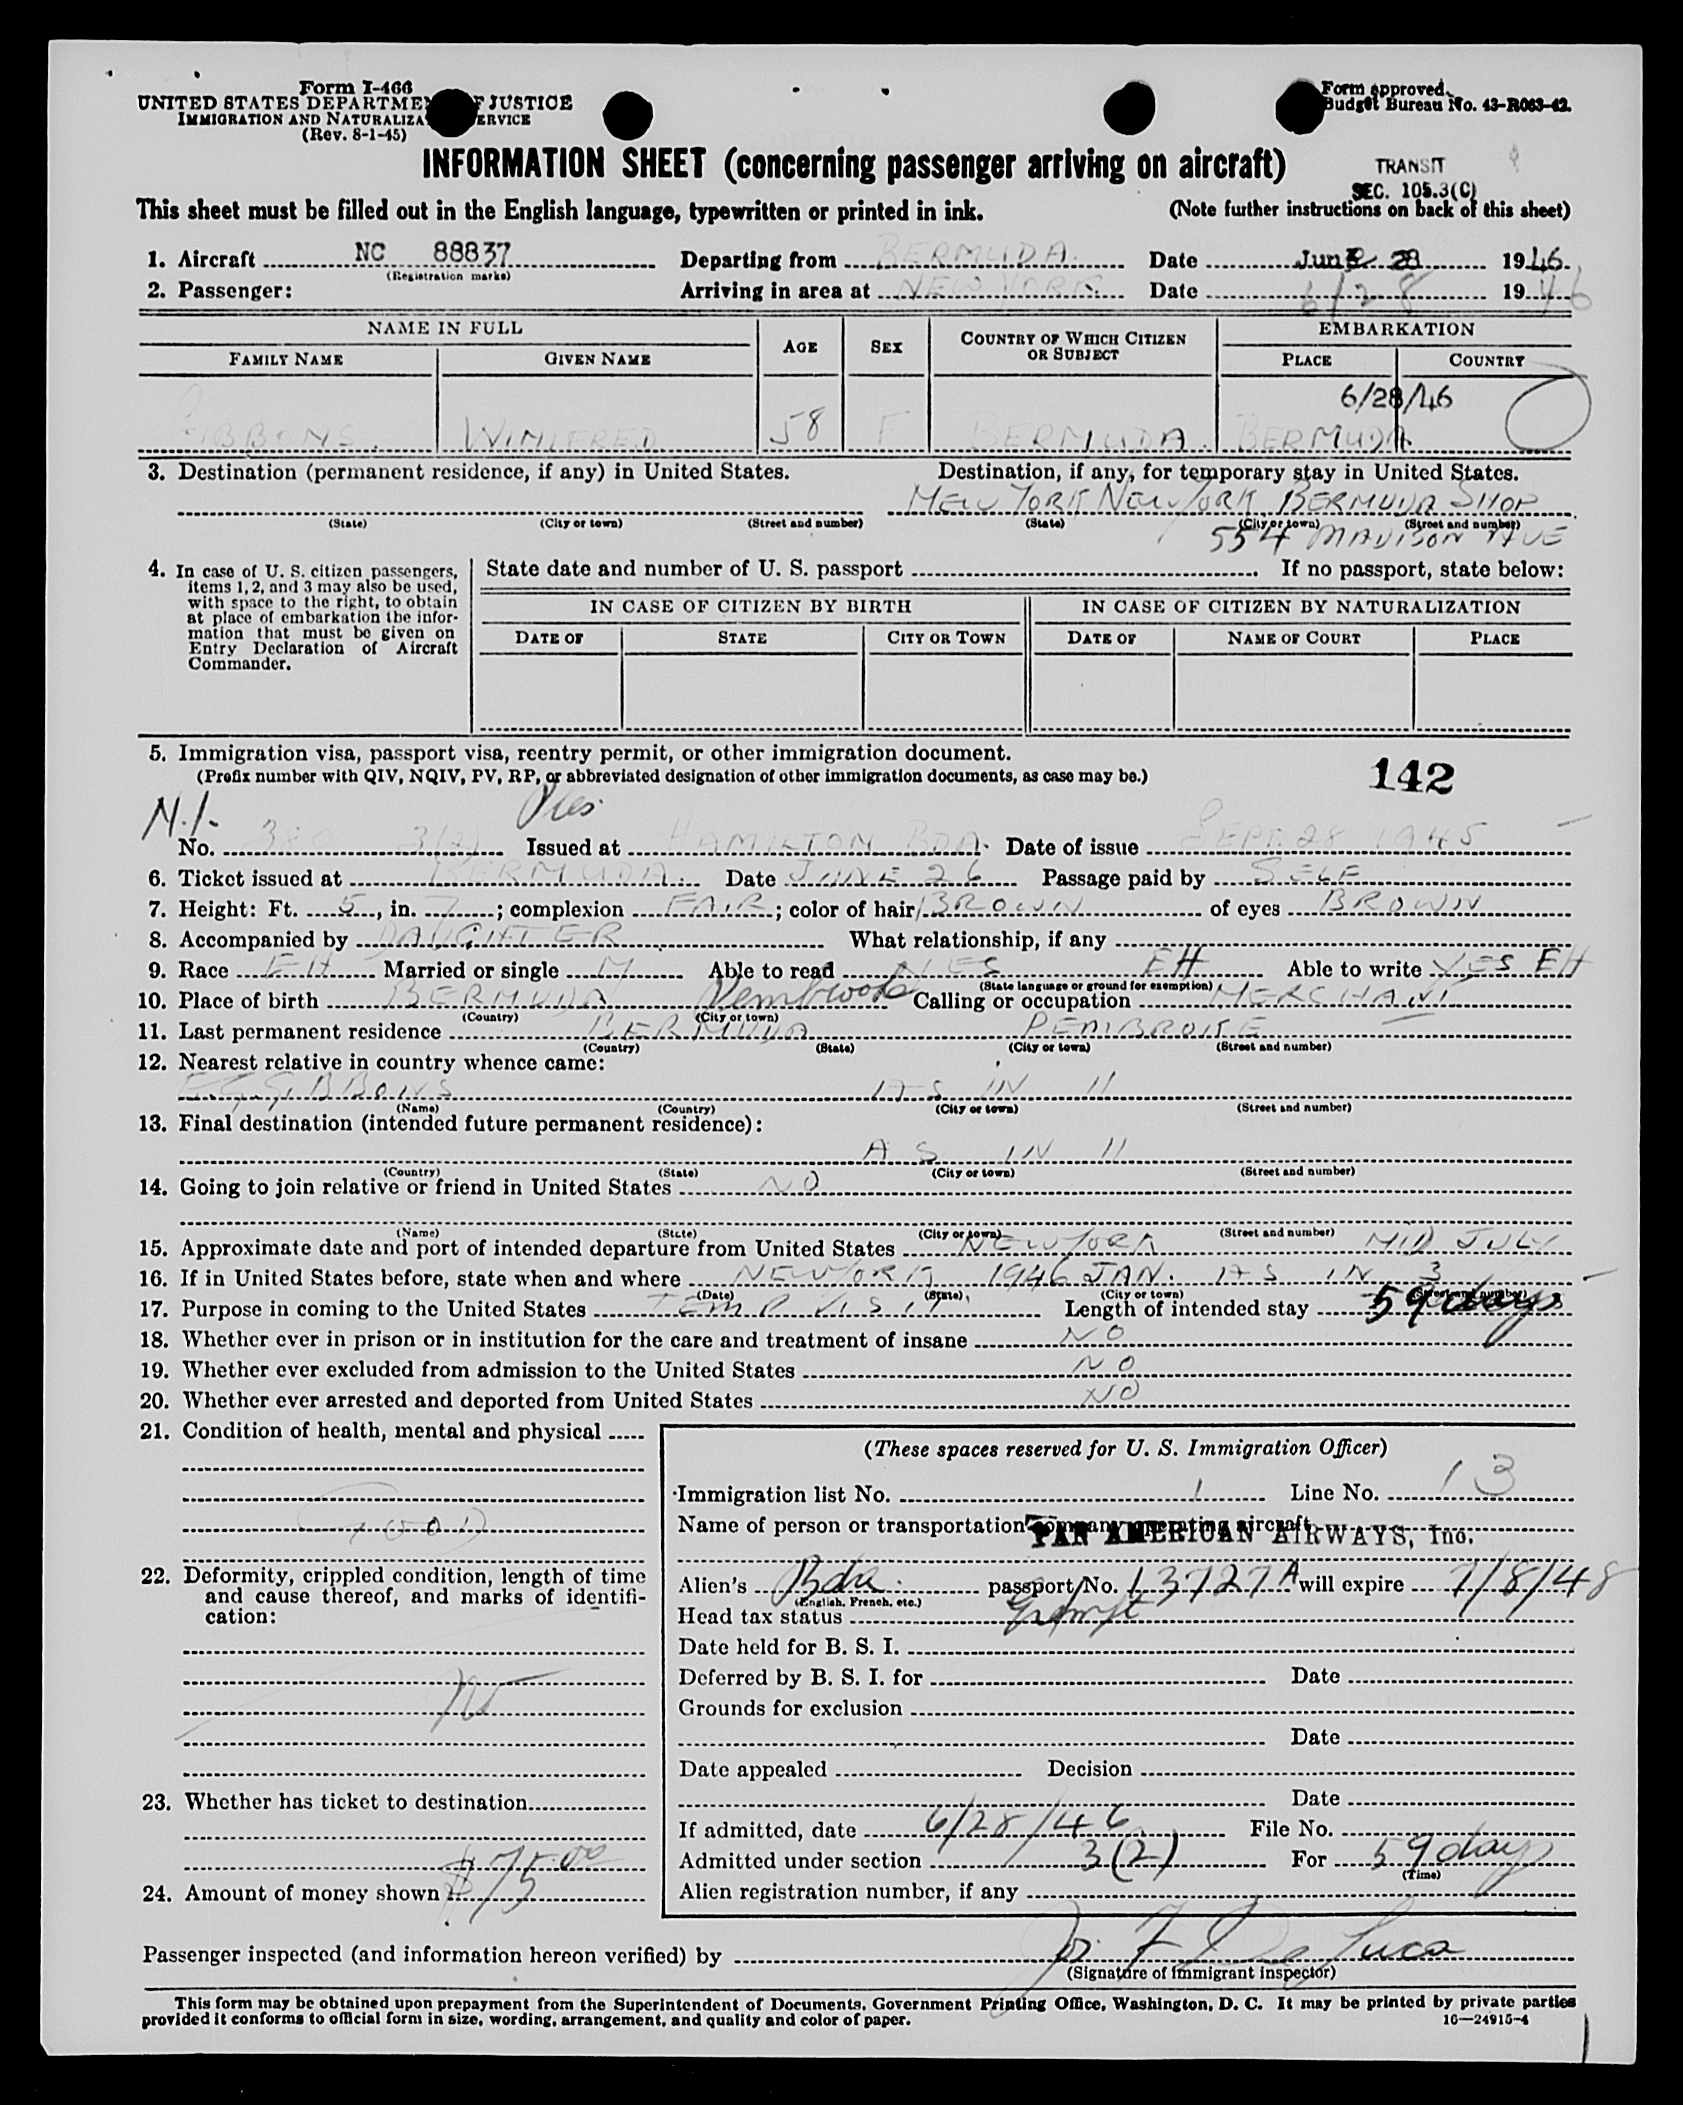 Form I-466
UNITED STATES DEPARTMENT OF JUSTICE
IMMIGRATION AND NATURALIZATION SERVICE
(Rev. 8-1-45)
Form approved.
Budget Bureau No. 43-R063-42.
INFORMATION SHEET (concerning passenger arriving on aircraft)
TRANSIT
SEC. 105.3(C)
This sheet must be filled out in the English language, typewritten or printed in ink.
(Note further instructions on back of this sheet)
1. Aircraft NC 88837 Departing from BERMUDA Date June 28 1946.
(Registration marks)
2. Passenger: Arriving in area at NEW YORK Date 6/28 1946
NAME IN FULL
FAMILY NAME GIVEN NAME AGE SEX COUNTRY OF WHICH CITIZEN OR SUBJECT EMBARKATION PLACE COUNTRY
6/28/46
GIBBONS. WINIFRED 58 F BERMUDA. BERMUDA
3. Destination (permanent residence, if any) in United States. Destination, if any, for temporary stay in United States.
NEW YORK NEW YORK BERMUDA SHOP
(State) (City or town) (Street and number) (State) (City or town) (Street and number)
554 MADISON AVE
4. In case of U. S. citizen passengers, items 1, 2, and 3 may also be used, with space to the right, to obtain at place of embarkation the information that must be given on Entry Declaration of Aircraft Commander.
State date and number of U. S. passport If no passport, state below:
IN CASE OF CITIZEN BY BIRTH IN CASE OF CITIZEN BY NATURALIZATION
DATE OF STATE CITY OR TOWN DATE OF NAME OF COURT PLACE
5. Immigration visa, passport visa, reentry permit, or other immigration document.
(Prefix number with QIV, NQIV, PV, RP, or abbreviated designation of other immigration documents, as case may be.)
142
N.I.
No. 3(2) Issued at HAMILTON BDA. Date of issue SEPT. 28 1945
6. Ticket issued at BERMUDA. Date JUNE 26 Passage paid by SELF
7. Height: Ft. 5, in. 7; complexion FAIR; color of hair BROWN of eyes BROWN
8. Accompanied by DAUGHTER What relationship, if any
9. Race EH Married or single M Able to read YES EH Able to write YES EH
(State language or ground for exemption)
10. Place of birth BERMUDA Pembroke Calling or occupation MERCHANT
(Country) (City or town)
11. Last permanent residence BERMUDA PEMBROKE
(Country) (State) (City or town) (Street and number)
12. Nearest relative in country whence came:
GIBBONS AS IN 11
(Name) (Country) (City or town) (Street and number)
13. Final destination (intended future permanent residence):
AS IN 11
(Country) (State) (City or town) (Street and number)
14. Going to join relative or friend in United States NO
(Name) (State) (City or town) (Street and number)
15. Approximate date and port of intended departure from United States NEW YORK MID JULY
16. If in United States before, state when and where NEW YORK 1946 JAN. AS IN 3
(Date) (State) (City or town) (Street and number)
17. Purpose in coming to the United States TEMP VISIT Length of intended stay 59 days
18. Whether ever in prison or in institution for the care and treatment of insane NO
19. Whether ever excluded from admission to the United States NO
20. Whether ever arrested and deported from United States NO
21. Condition of health, mental and physical
GOOD
22. Deformity, crippled condition, length of time and cause thereof, and marks of identification:
no
23. Whether has ticket to destination
24. Amount of money shown $75.00
(These spaces reserved for U. S. Immigration Officer)
Immigration list No. 1 Line No. 13
Name of person or transportation company operating aircraft
PAN AMERICAN AIRWAYS, Inc.
Alien's Bda. passport No. 13727A will expire 7/8/48
(English, French, etc.)
Head tax status Exempt
Date held for B. S. I.
Deferred by B. S. I. for Date
Grounds for exclusion
Date
Date appealed Decision
Date
If admitted, date 6/28/46 File No.
Admitted under section 3(2) For 59 days
(Time)
Alien registration number, if any
Passenger inspected (and information hereon verified) by De Luca
(Signature of immigrant inspector)
This form may be obtained upon prepayment from the Superintendent of Documents, Government Printing Office, Washington, D. C. It may be printed by private parties
provided it conforms to official form in size, wording, arrangement, and quality and color of paper.
16—24915-4